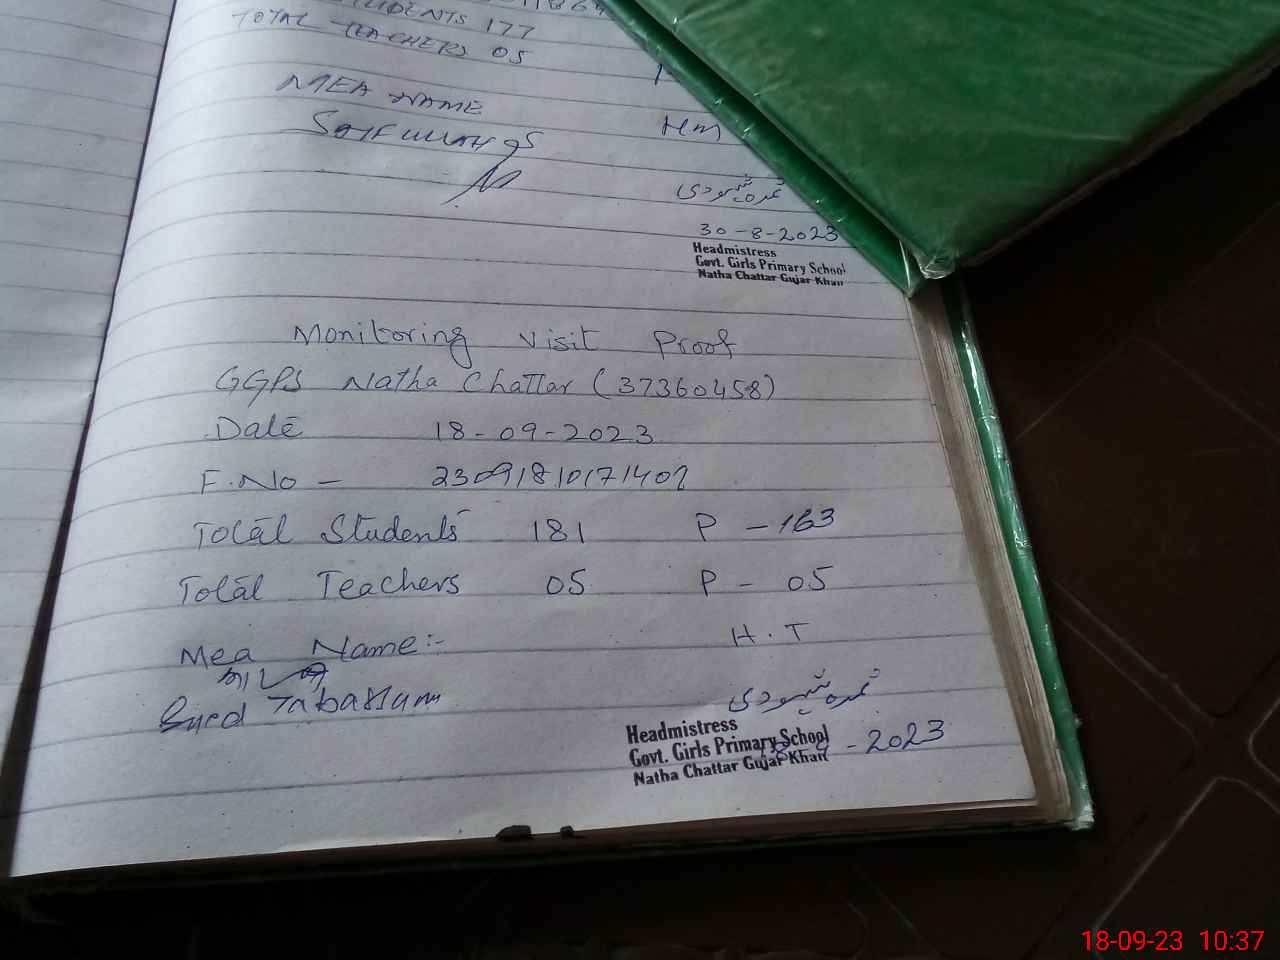 STUDENTS 177
TOTAL TEACHERS 05
MEA NAME
SAIFULLAH
HM
30-8-2023
Headmistress
Govt. Girls Primary School
Natha Chattar Gujar Khan
Monitoring Visit Proof
GGPS Natha Chattar (37360458)
Date 18-09-2023
F.No -
Total Students 181 P - 163
Total Teachers 05 P - 05
Mea Name:- H.T
Syed Tabassum
Headmistress
Govt. Girls Primary School
Natha Chattar Gujar Khan
-2023
18-09-23 10:37